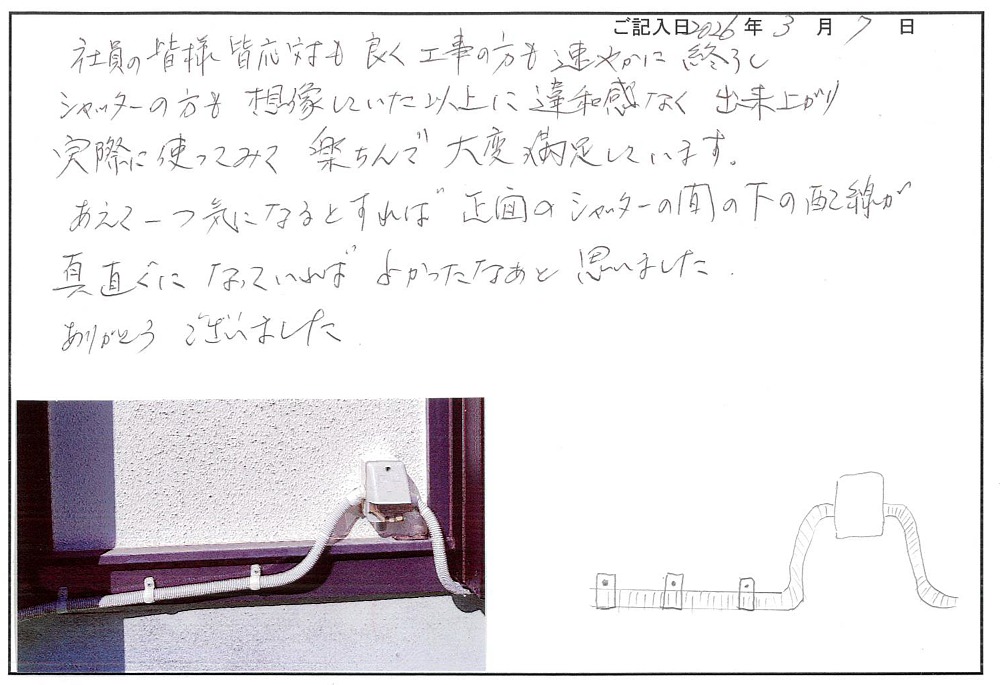 ご記入日2026年 3 月 7 日
社員の皆様 皆応対も 良く 工事の方も 速やかに 終了し
シャッターの方も 想像していた以上に 違和感なく 出来上がり
実際に 使ってみて 楽ちんで 大変満足しています。
あえて一つ気になるとすれば 正面の シャッターの間の下の配線が
真直ぐに なっていれば よかったなぁと 思いました。
ありがとう ございました